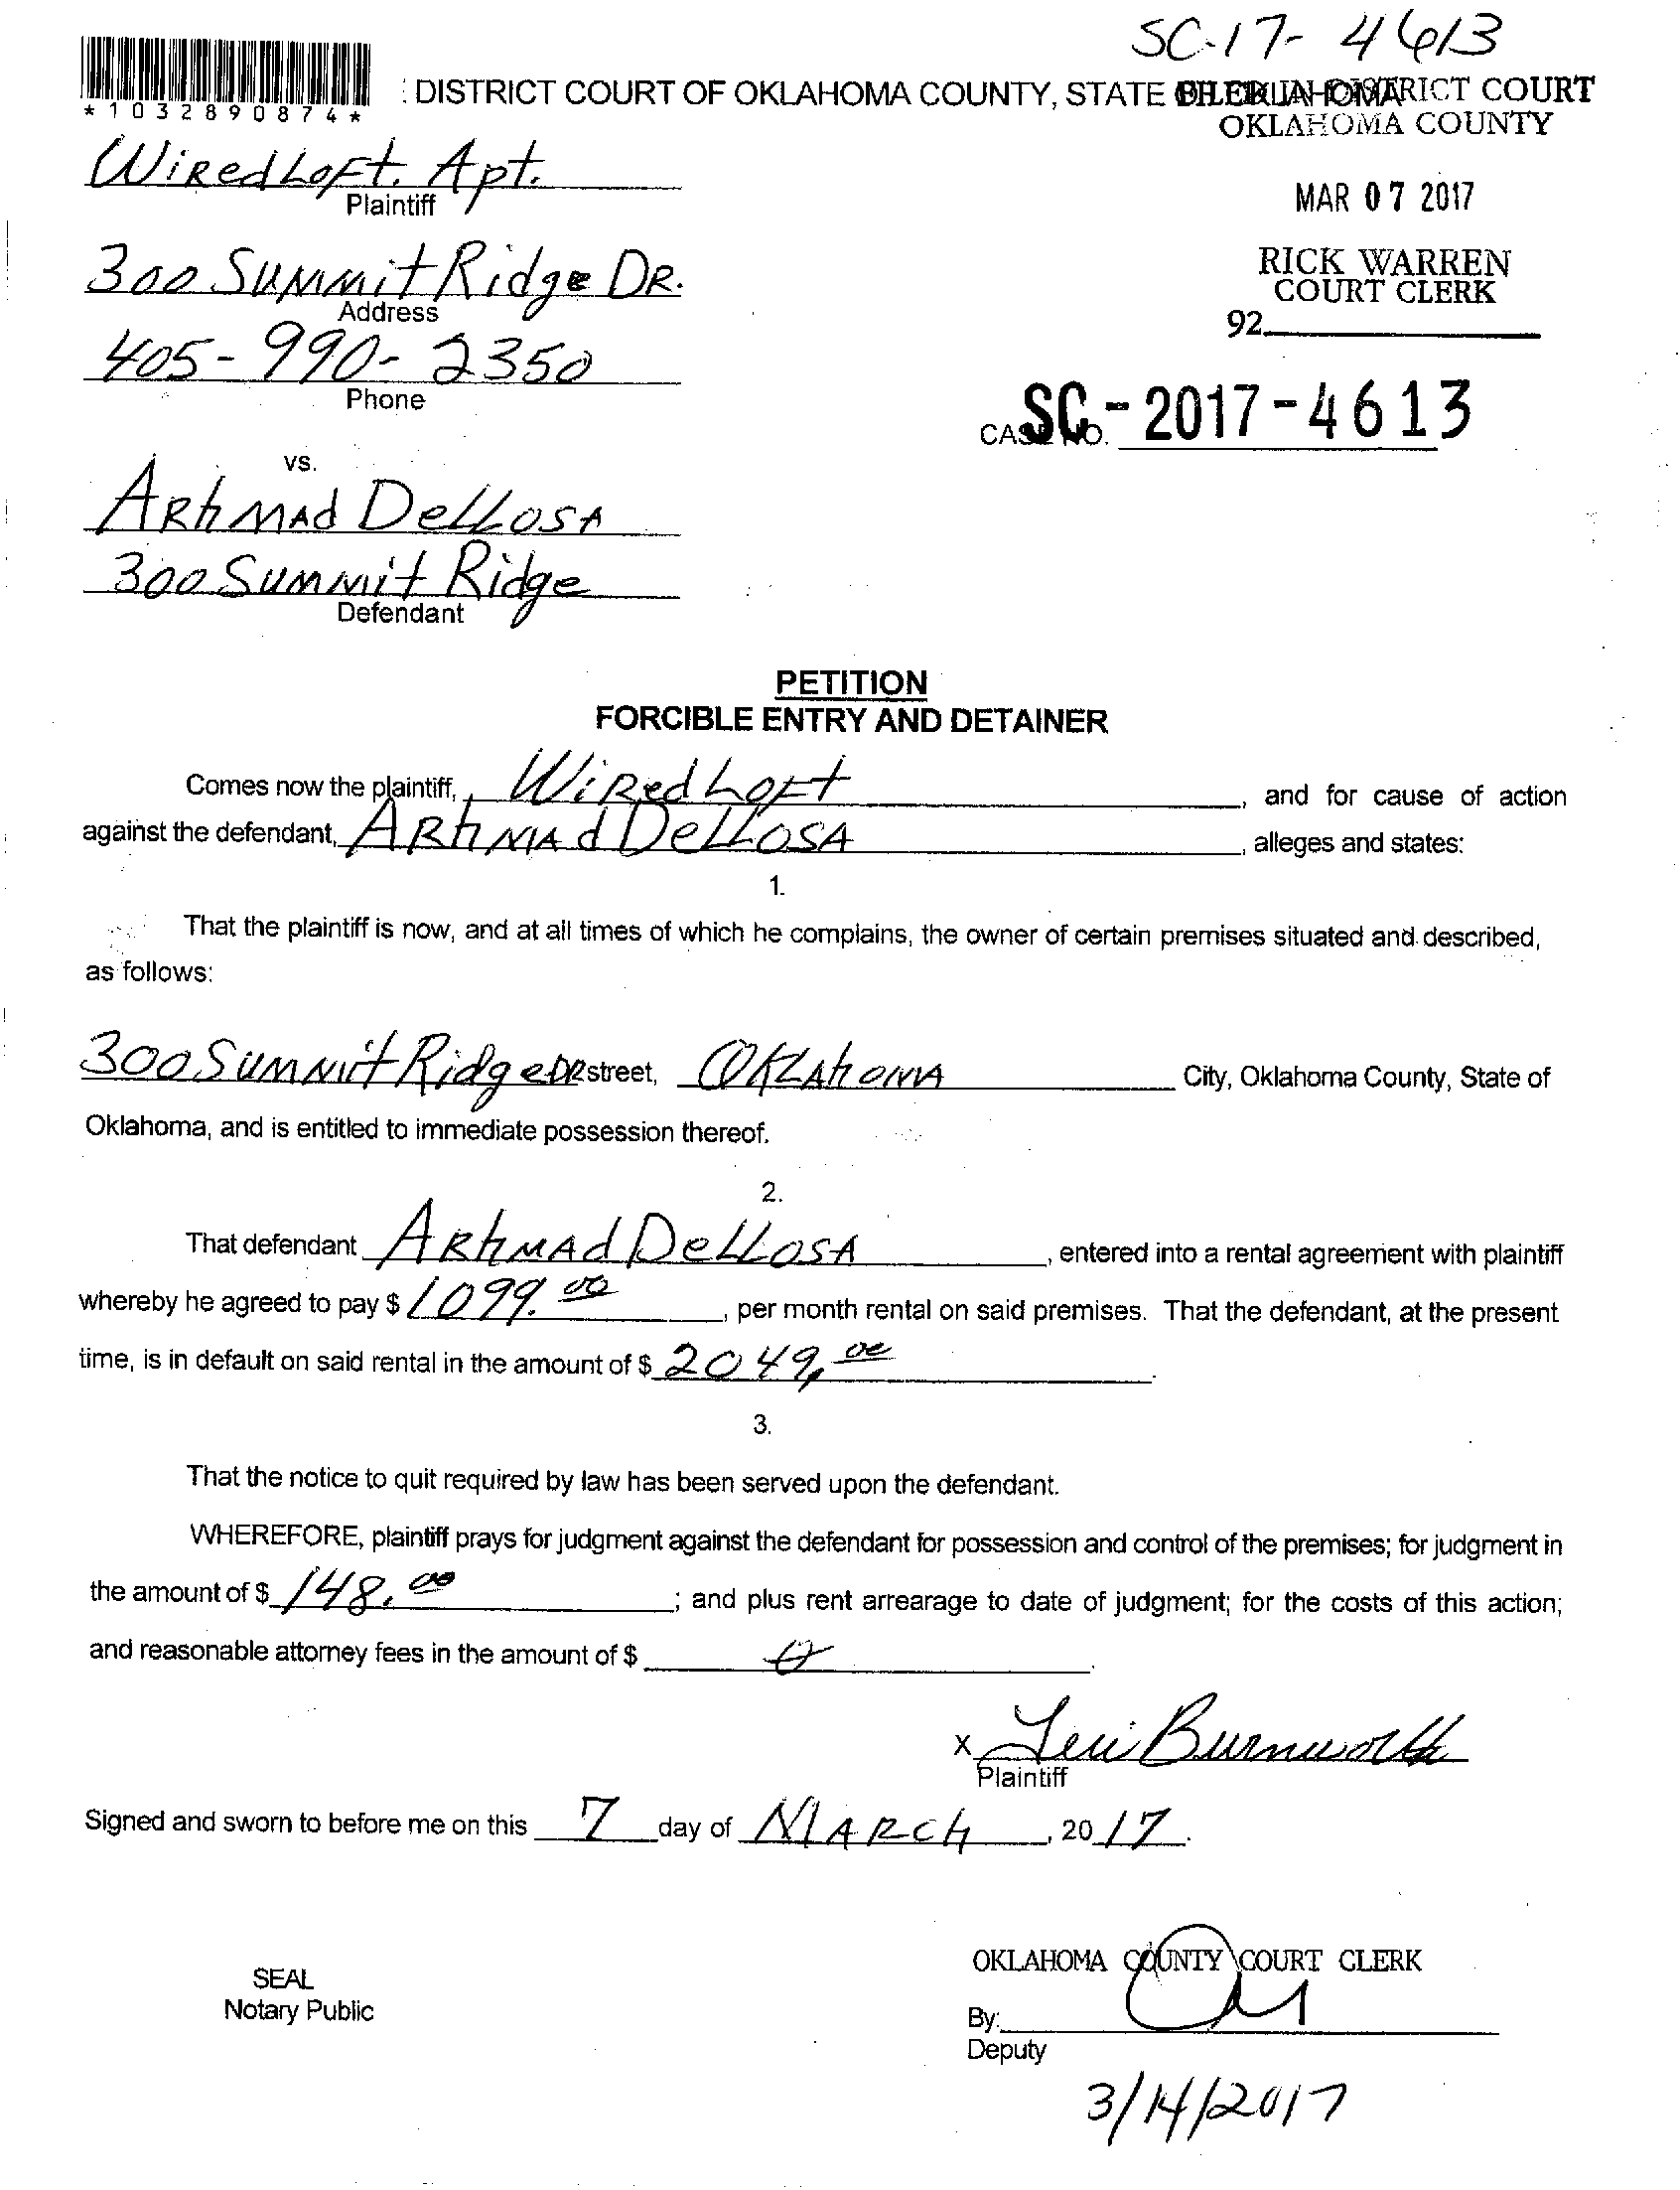 SC-17-4613
*1032890874*
DISTRICT COURT OF OKLAHOMA COUNTY, STATE
FILED IN DISTRICT COURT
OKLAHOMA COUNTY
MAR 07 2017
RICK WARREN
COURT CLERK
92
Wired Loft. Apt.
Plaintiff
300 Summit Ridge DR.
Address
405-990-2350
Phone
CASE NO. SC-2017-4613
vs.
Arhmad Dellosa
300 Summit Ridge
Defendant
PETITION
FORCIBLE ENTRY AND DETAINER
Comes now the plaintiff, Wired Loft, and for cause of action
against the defendant, Arhmad Dellosa, alleges and states:
1.
That the plaintiff is now, and at all times of which he complains, the owner of certain premises situated and described,
as follows:
300 Summit Ridge DR street, Oklahoma City, Oklahoma County, State of
Oklahoma, and is entitled to immediate possession thereof.
2.
That defendant Arhmad Dellosa, entered into a rental agreement with plaintiff
whereby he agreed to pay $ 1099.00, per month rental on said premises. That the defendant, at the present
time, is in default on said rental in the amount of $ 2049.00.
3.
That the notice to quit required by law has been served upon the defendant.
WHEREFORE, plaintiff prays for judgment against the defendant for possession and control of the premises; for judgment in
the amount of $ 148.00; and plus rent arrearage to date of judgment; for the costs of this action;
and reasonable attorney fees in the amount of $ 0.
x Teri Burnworth
Plaintiff
Signed and sworn to before me on this 7 day of March, 2017.
OKLAHOMA COUNTY COURT CLERK
SEAL
Notary Public
By:
Deputy
3/14/2017